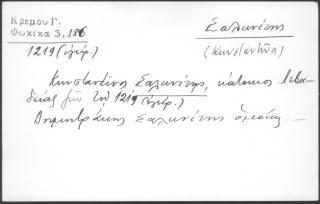 Κρέμου Γ.
Φωκικα 3, 186
1219 (ἐγέρ.)
Σαλωνίτης
(Κωνσταντῖν)
Κωνσταντῖνος Σαλωνίτης, κάτοικος Λεβα-
δείας ζῶν τῷ 1219 (ἐγέρ.)
Δημητράκης Σαλωνίτης ὁμοίως —